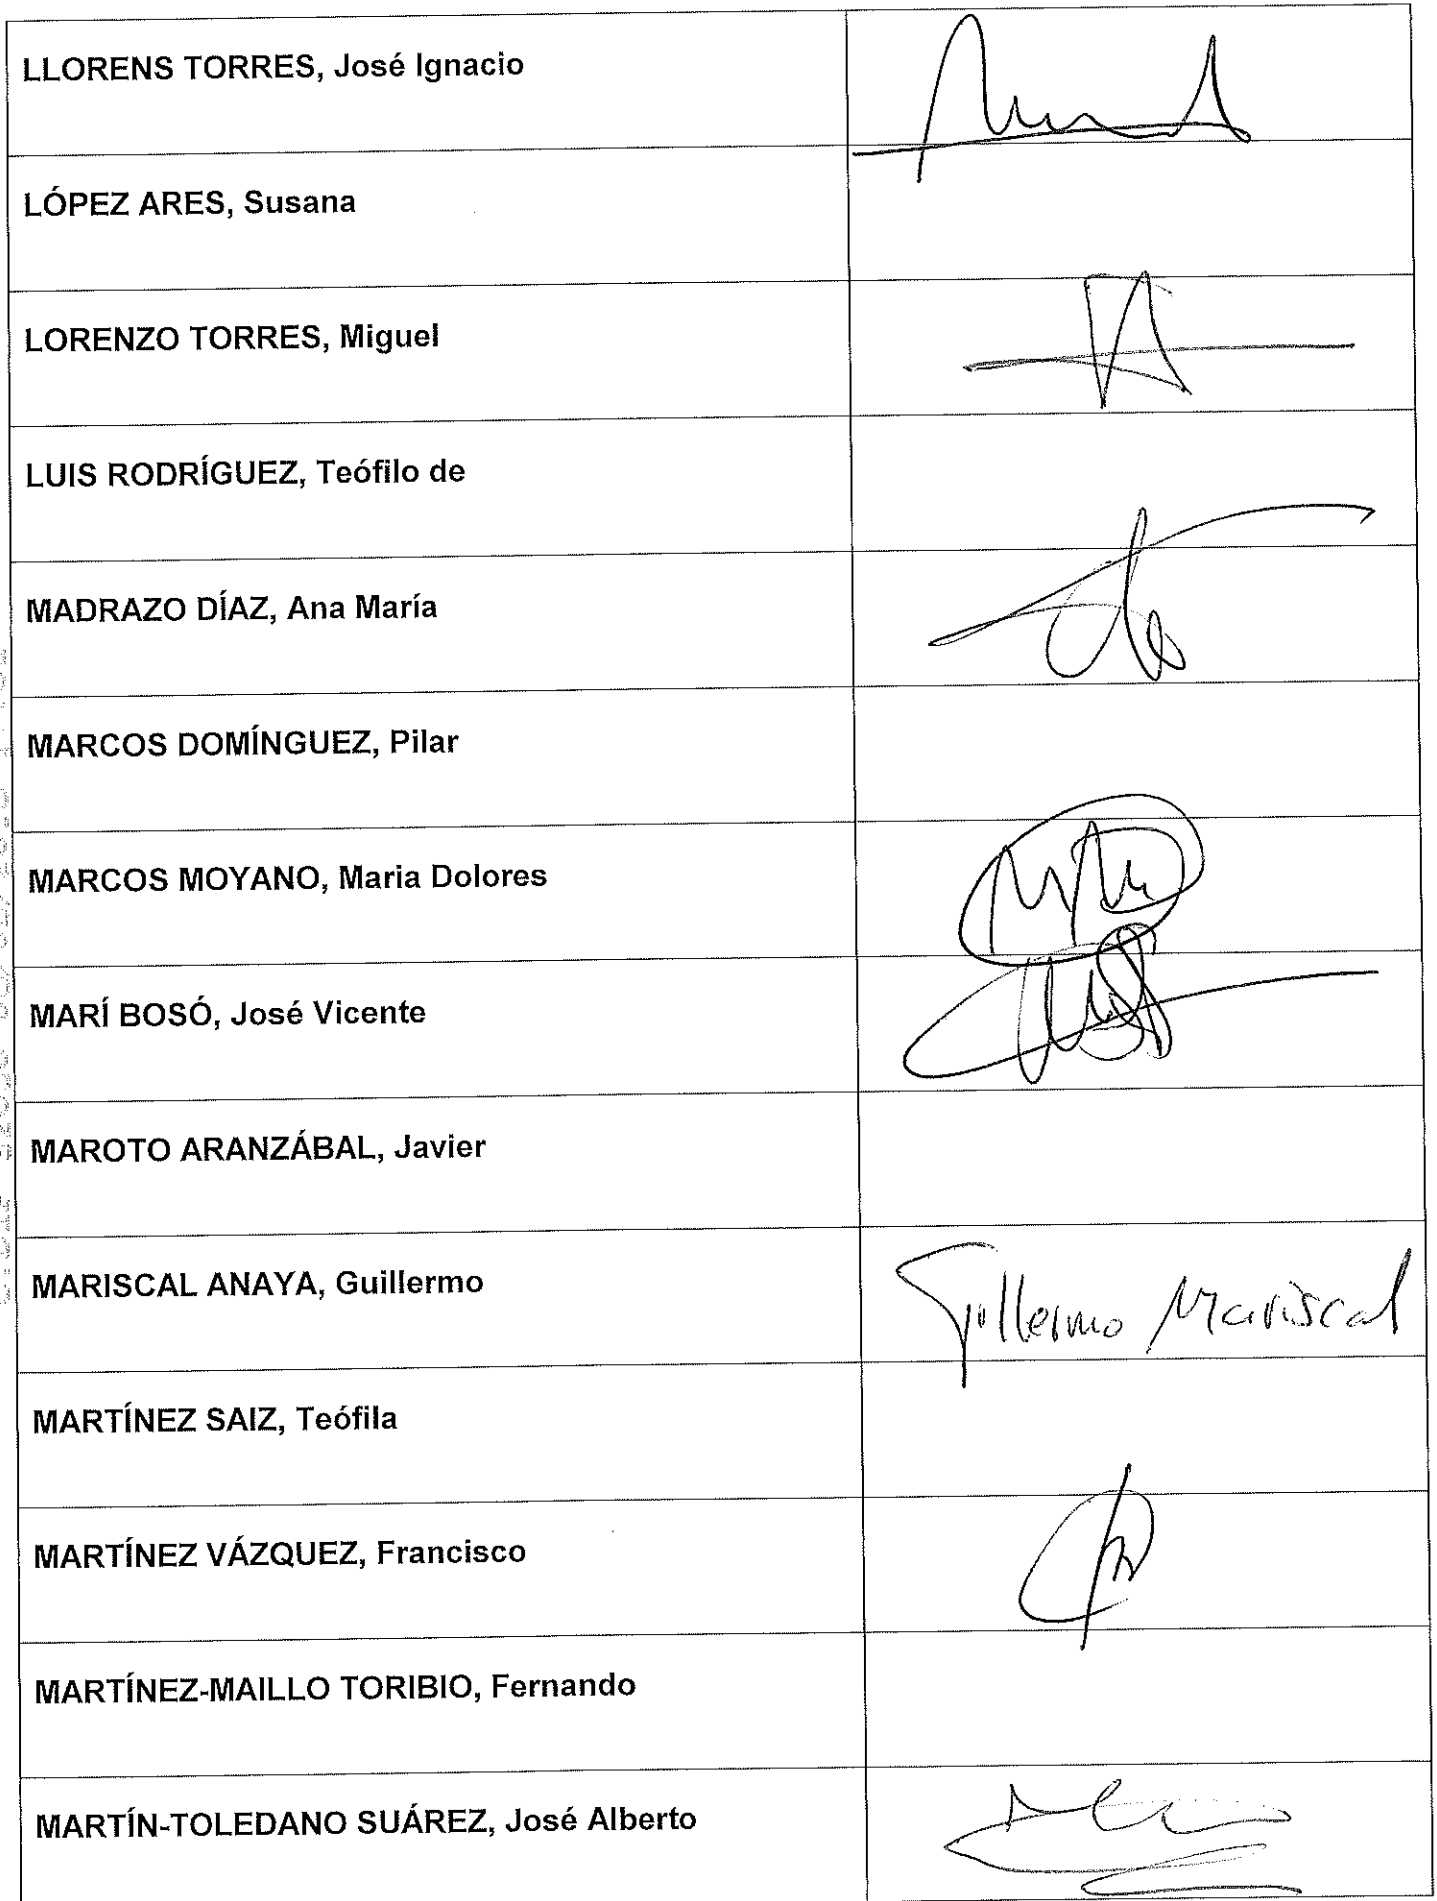 LLORENS TORRES, José Ignacio
LÓPEZ ARES, Susana
LORENZO TORRES, Miguel
LUIS RODRÍGUEZ, Teófilo de
MADRAZO DÍAZ, Ana María
MARCOS DOMÍNGUEZ, Pilar
MARCOS MOYANO, Maria Dolores
MARÍ BOSÓ, José Vicente
MAROTO ARANZÁBAL, Javier
MARISCAL ANAYA, Guillermo
Guillermo Mariscal
MARTÍNEZ SAIZ, Teófila
MARTÍNEZ VÁZQUEZ, Francisco
MARTÍNEZ-MAILLO TORIBIO, Fernando
MARTÍN-TOLEDANO SUÁREZ, José Alberto